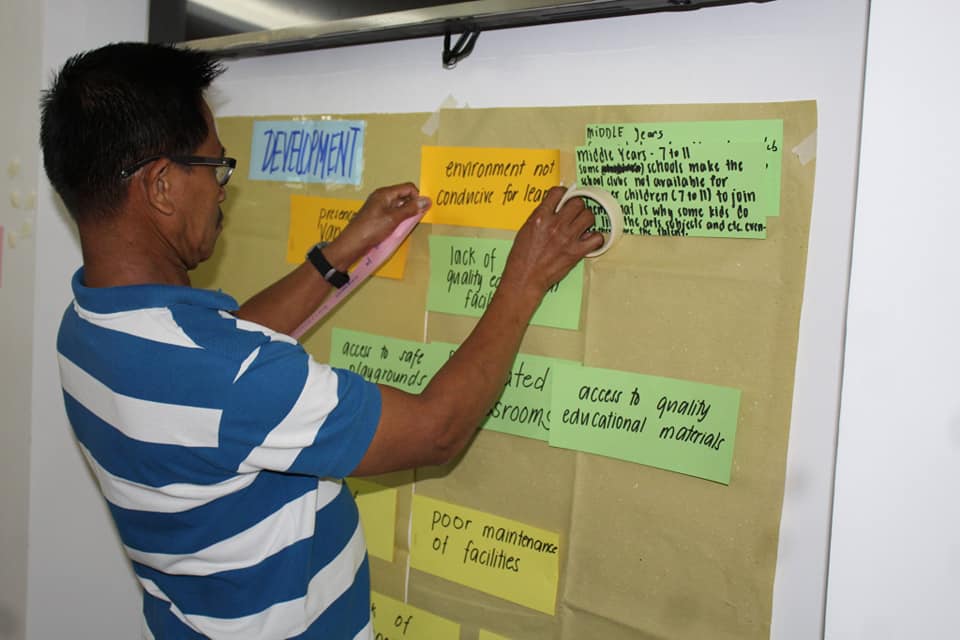 DEVELOPMENT
environment not
conducive for
MIDDLE Years
Middle Years - 7 to 11
some schools make the
school clubs not available for
children (7 to 11) to join
is why some kids do
the arts subjects and etc. even
the talent.
lack of
quality
access to safe
playgrounds
access to quality
educational materials
poor maintenance
of facilities
of